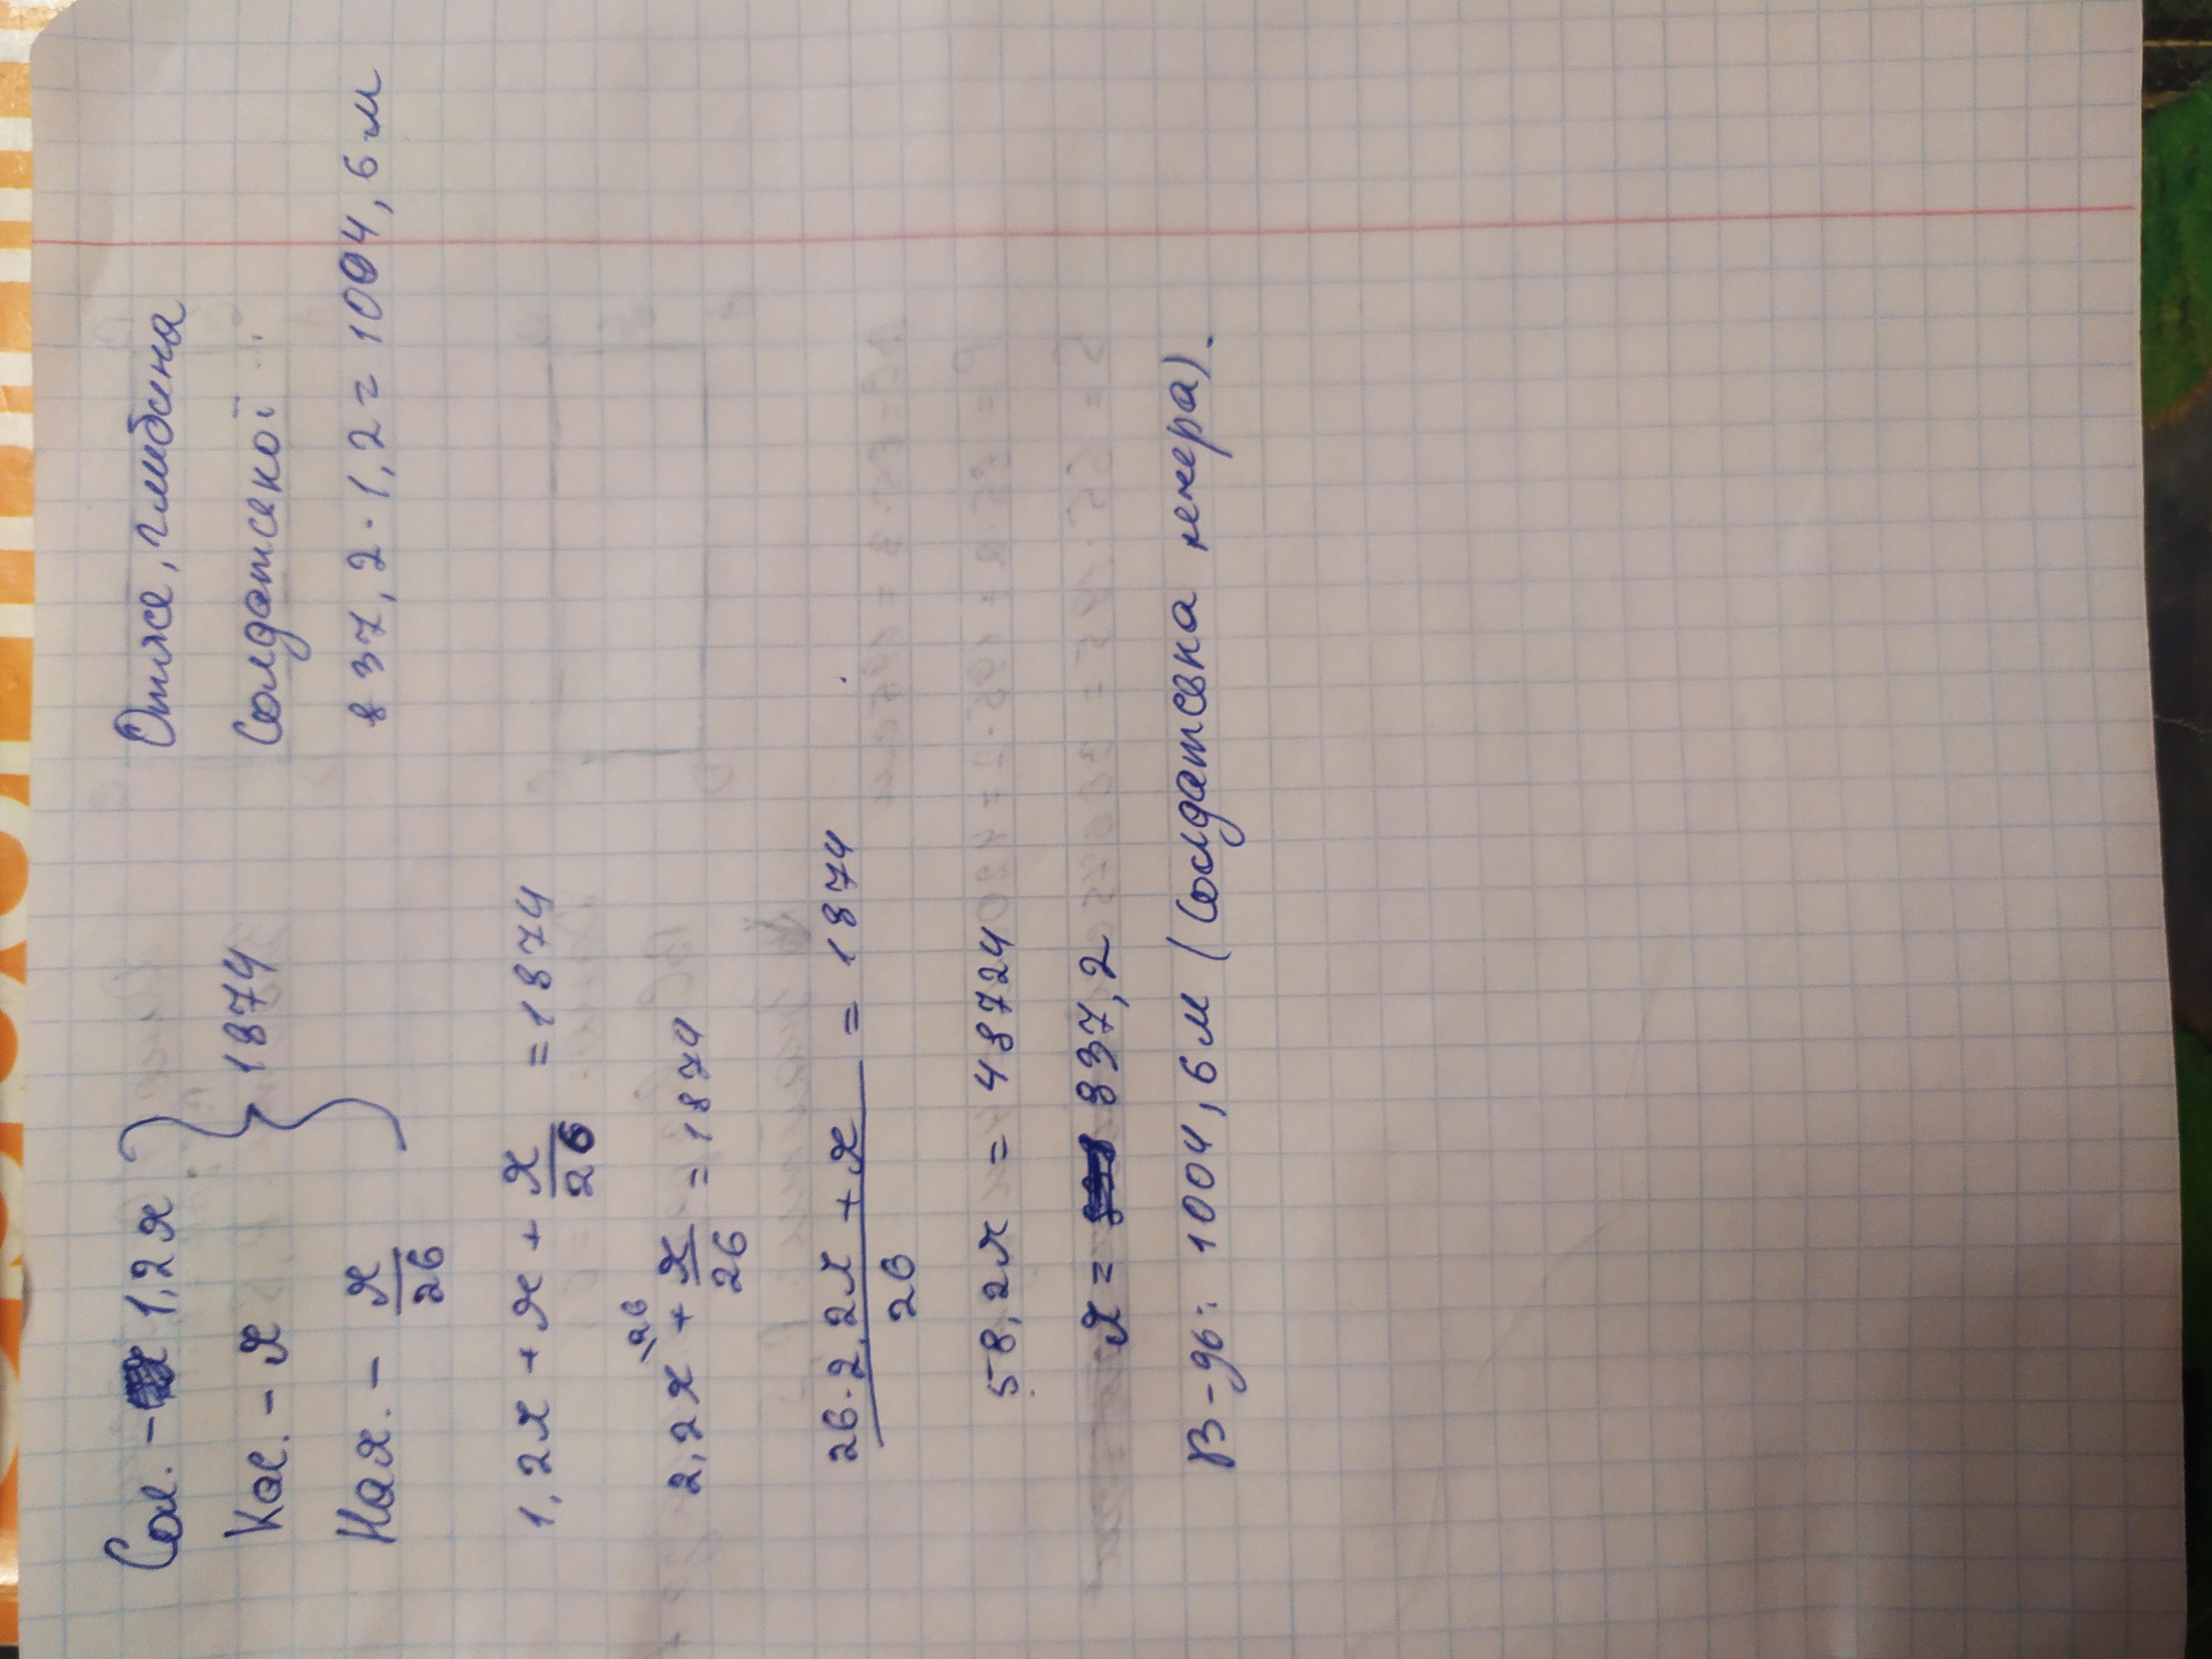 Сол. - 1,2х
Кол. - х
Нах. - х/26
} 1874
Отже, глибина
Солдатської:
837,2 · 1,2 = 1004,6 м
1,2х + х + х/26 = 1874
2,2х + х/26 = 1874
26
26 · 2,2х + х / 26 = 1874
58,2х = 48724
х = 837,2
В-дь: 1004,6 м (Солдатська печера).